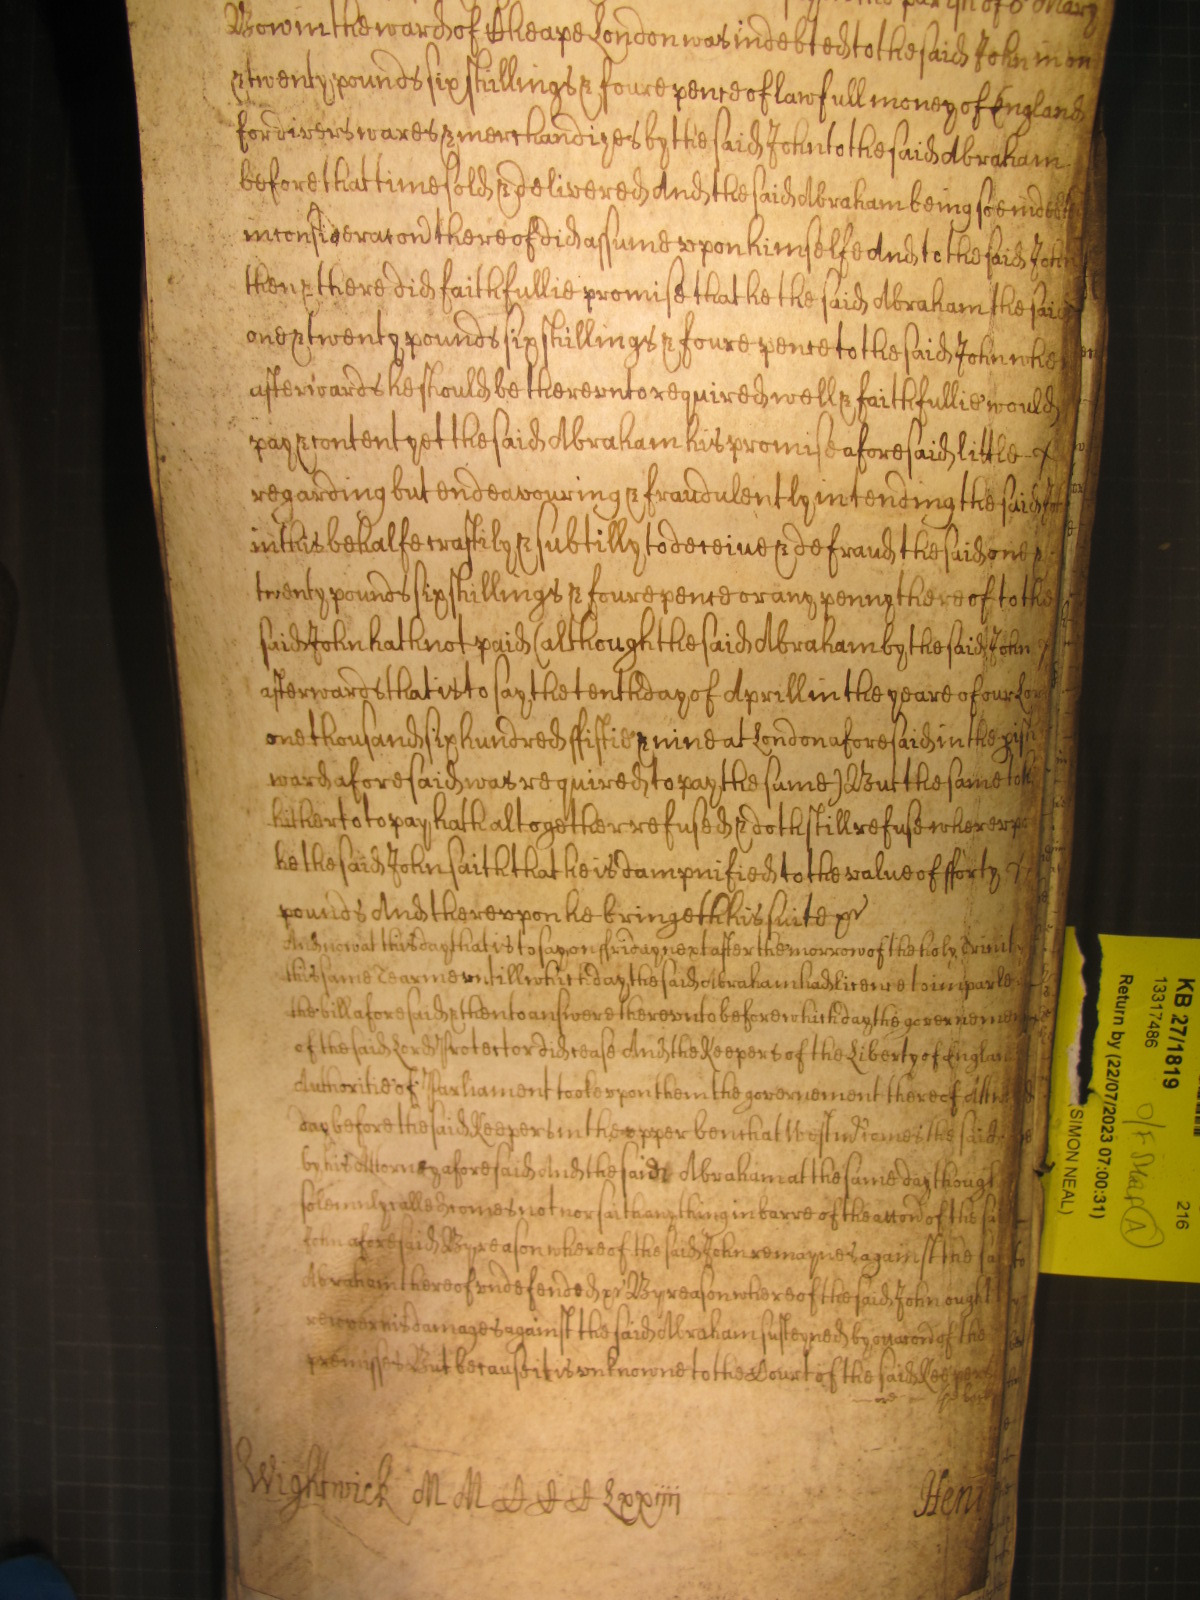 parish of S Mary
Bow in the ward of Cheape London was indebted to the said John in on
& twenty pounds six shillings & foure pence of lawfull money of England
for divers wares & merchandizes by the said John to the said Abraham
before that time sold & delivered And the said Abraham being soe indebt
in consideracon thereof did assume vpon himselfe And to the said John
then & there did faithfullie promise that he the said Abraham the said
one & twenty pounds six shillings & foure pence to the said John when
afterwards he should be therevnto required well & faithfullie would
pay & content yet the said Abraham his promise aforesaid little
regarding but endeavouring & fraudulently intending the said Joh
in this behalfe craftily & subtilly to deceive & defraud the said one &
twenty pounds six shillings & foure pence or any penny thereof to the
said John hath not paid (although the said Abraham by the said John
afterwards that is to say the tenth day of Aprill in the yeare of our Lor
one thousand six hundred ffiftie & nine at London aforesaid in the pish
ward aforesaid was required to pay the same) But the same to
hitherto to pay hath altogether refused & doth still refuse wherevpo
he the said John saith that he is dampnified to the value of fforty
pounds And therevpon he bringeth his suite &c
And now at this day that is to say on ffriday next after the morrow of the holy Trinit
this same Tearme vntill which day the said Abraham had licence to imparle
the bill aforesaid & then to answere therevnto before which day the governeme
of the said Lord Protector did cease And the Keepers of the Liberty of Englan
Authoritie of Parliament tooke vpon them the governement thereof At
day before the said Keepers in the vpper bench at Westm comes the said
by his Attorney aforesaid And the said Abraham at the same day though
solemnly called comes not nor saith any thing in barre of the accon of the sa
John aforesaid By reason whereof the said John remaynes against the sa
Abraham thereof vndefended &c By reason whereof the said John ought
recover his damages against the said Abraham susteyned by occon of the
premisses But because it is vnknowne to the Court of the said Keepers
Wightwick M M D D D Lxxiiii
Hen
KB 27/1819 216
13317486
O/F Staff (A)
Return by (22/07/2023 07:00:31)
(SIMON NEAL)